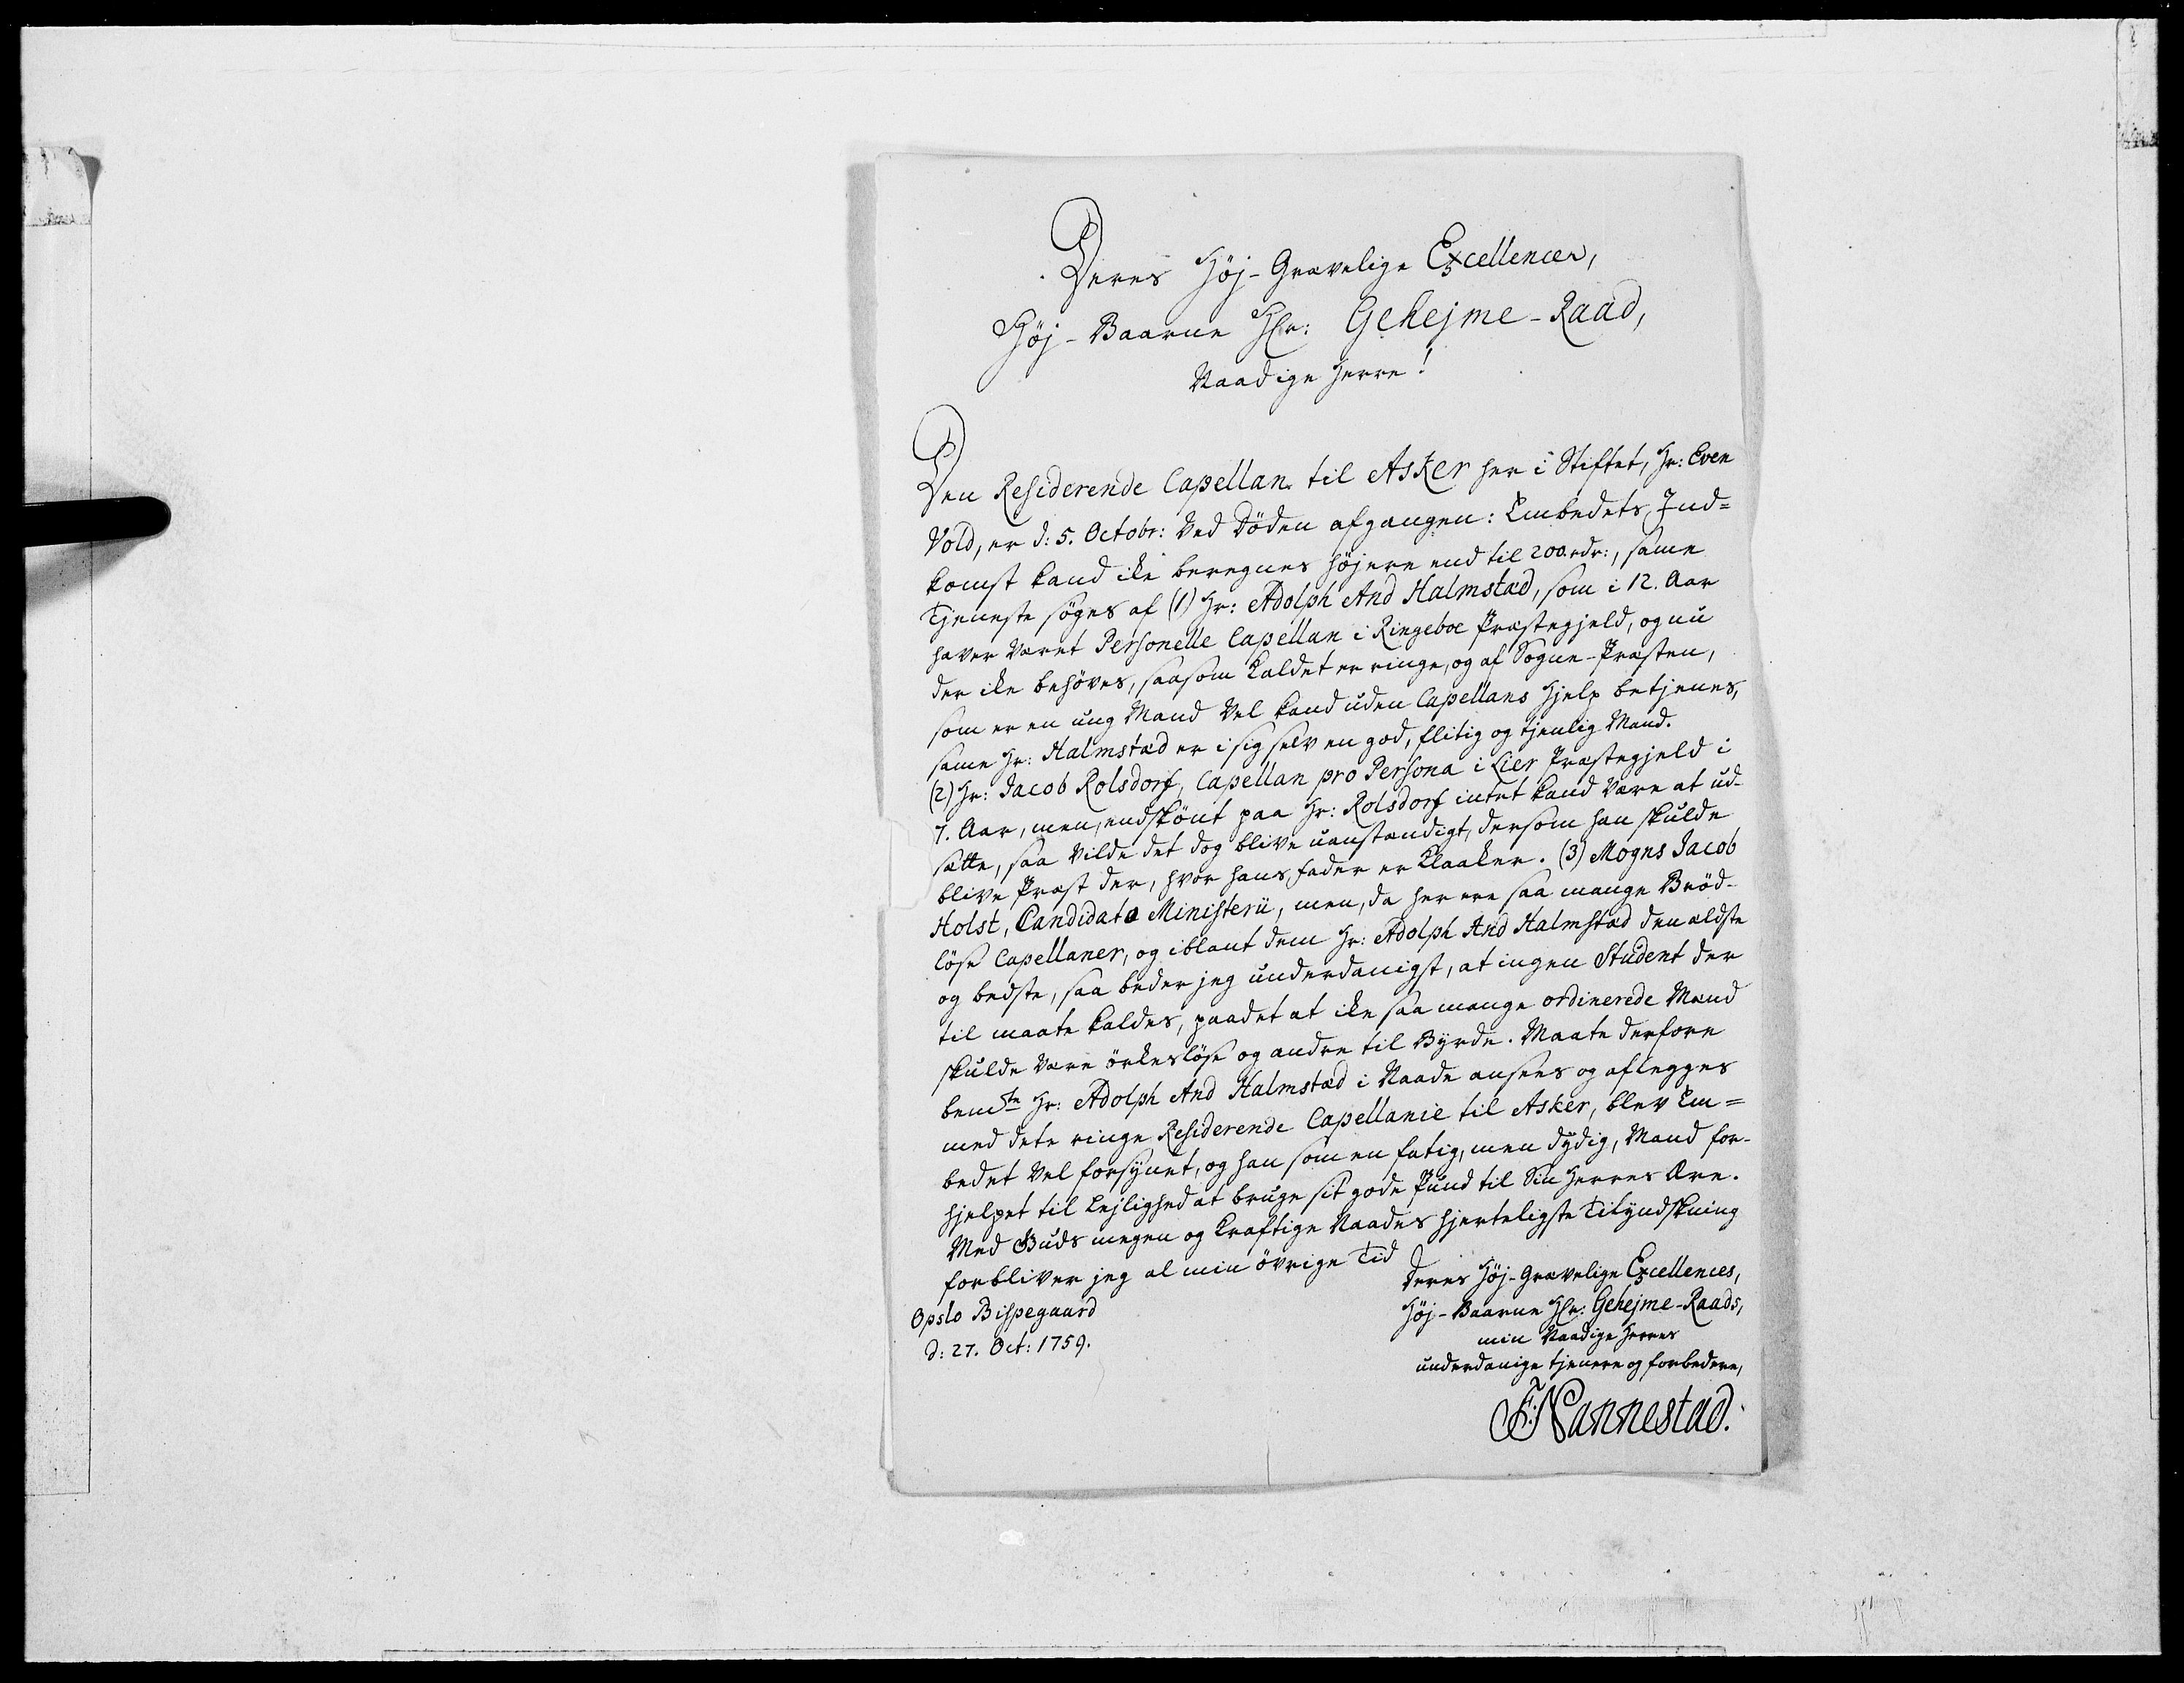 Deres Høj-Grævelige Excellence,
Høj-Baarne Hr: Gehejme-Raad,
Naadige Herre!
Den Residerende Capellan til Asker her i Stiftet, Hr: Even
Vold, er d: 5. Octobr: ved Döden afgangen: Embedets Ind=
komst kand ike beregnes höjere end til 200 rdr:, same
Tjeneste söges af (1) Hr: Adolph And Halmstad, som i 12. Aar
haver været Personelle Capellan i Ringeboe Præstegjeld, og nu
der ike behöves, saasom Kaldet er ringe, og af Sogne-Præsten,
som er en ung Mand vel kand uden Capellans Hjelp betjenes,
same Hr: Halmstad er i sig selv en god, flitig og tjenlig Mand.
(2) Hr: Jacob Rolsdorf, Capellan pro Persona i Lier Præstegjeld i
7. Aar, men, endskönt paa Hr: Rolsdorf intet kand være at ud-
sætte, saa vilde det dog blive uanstændigt, dersom han skulde
blive Præst der, hvor hans Fader er Klaaker. (3) Mogns Jacob
Holst, Candidato Ministerii, men, da her ere saa mange Bröd-
löse Capellaner, og iblant dem Hr: Adolph And Halmstad den ældste
og bedste, saa beder jeg underdanigst, at ingen Student der
til maate kaldes, paadet at ike saa mange ordinerede Mænd
skulde være örkeslöse og andre til Byrde. Maate derfore
bemte Hr: Adolph And Halmstad i Naade ansees og aflegges
med dete ringe Residerende Capellanie til Asker, blev Em=
bedet vel forsynet, og han som en fatig, men dydig, Mand for-
hjelpet til Lejlighed at bruge sit gode Pund til Sin Herres Ære.
Med Guds megen og kraftige Naades hjerteligste Tilyndskning
forbliver jeg al min övrige Tid
Deres Høj-Grævelige Excellences,
Høj-Baarne Hr: Gehejme-Raads,
min Naadige Herres
underdanige tjenere og forbedere,
Opslo Bispegaard
d: 27. Oct: 1759.
F: Nannestad.